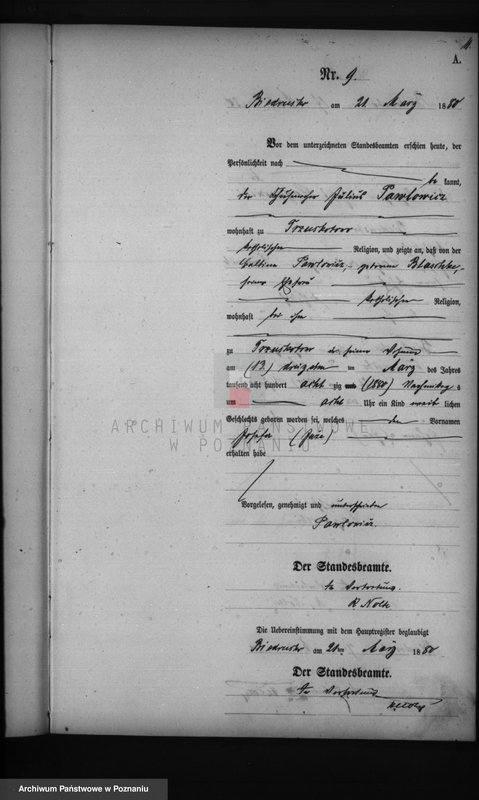 A.
Nr. 9.
Biedrusko am 21. März 1880
Vor dem unterzeichneten Standesbeamten erschien heute, der
Persönlichkeit nach
be kannt,
der Julius Pawlowicz
wohnhaft zu
katholischer Religion, und zeigte an, daß von der
Pawlowicz, geborene Blaschke,
seiner Ehefrau
katholischer Religion,
wohnhaft bei ihm
zu in seiner Wohnung
am (13.) dreizehn ten März des Jahres
tausend acht hundert acht zig (1880) Nachmittag s
um acht Uhr ein Kind weib lichen
Geschlechts geboren worden sei, welches den Vornamen
Josefa
erhalten habe
Vorgelesen, genehmigt und unterschrieben
Pawlowicz
Der Standesbeamte.
In Vertretung.
R. Nolte
Die Uebereinstimmung mit dem Hauptregister beglaubigt
Biedrusko am 21ten März 1880
Der Standesbeamte.
In Vertretung
ARCHIWUM PAŃSTWOWE
W POZNANIU
Archiwum Państwowe w Poznaniu